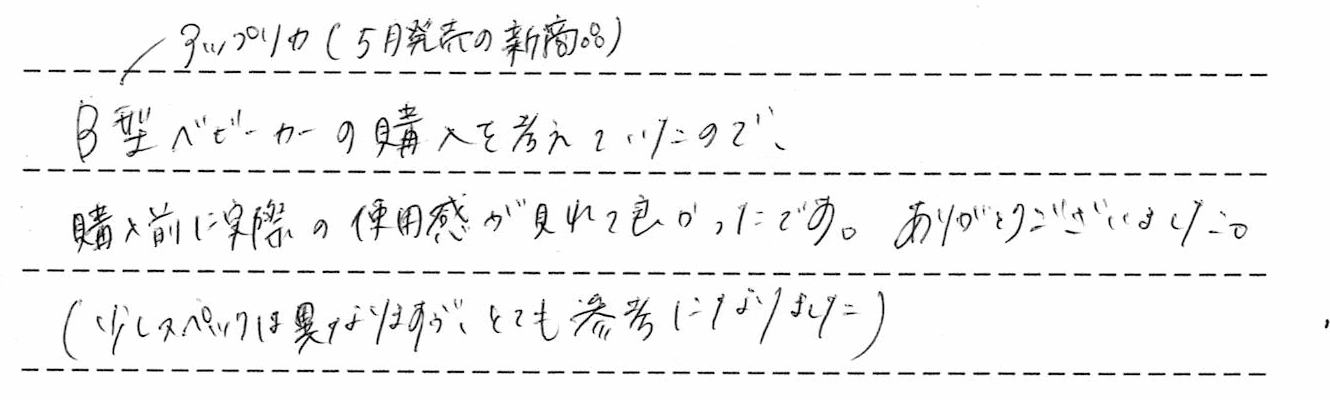 アップリカ(5月発売の新商品)
B型ベビーカーの購入を考えていたので、
購入前に実際の使用感が見れて良かったです。ありがとうございました。
(少しスペックは異なりますが、とても参考になりました)